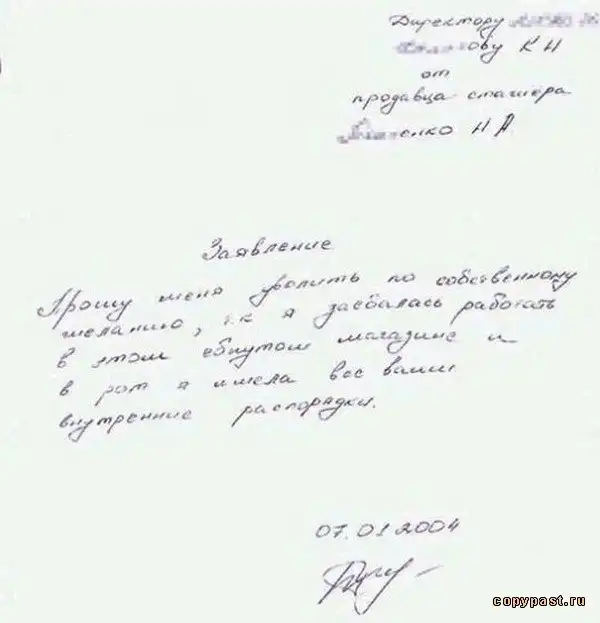 Директору
ову К Н
от
продавца стажера
енко Н А
Заявление
Прошу меня уволить по собственному
желанию, т.к я заебалась работать
в этом ебнутом магазине и
в рот я имела все ваши
внутренние распорядки.
07.01 2004
copypast.ru